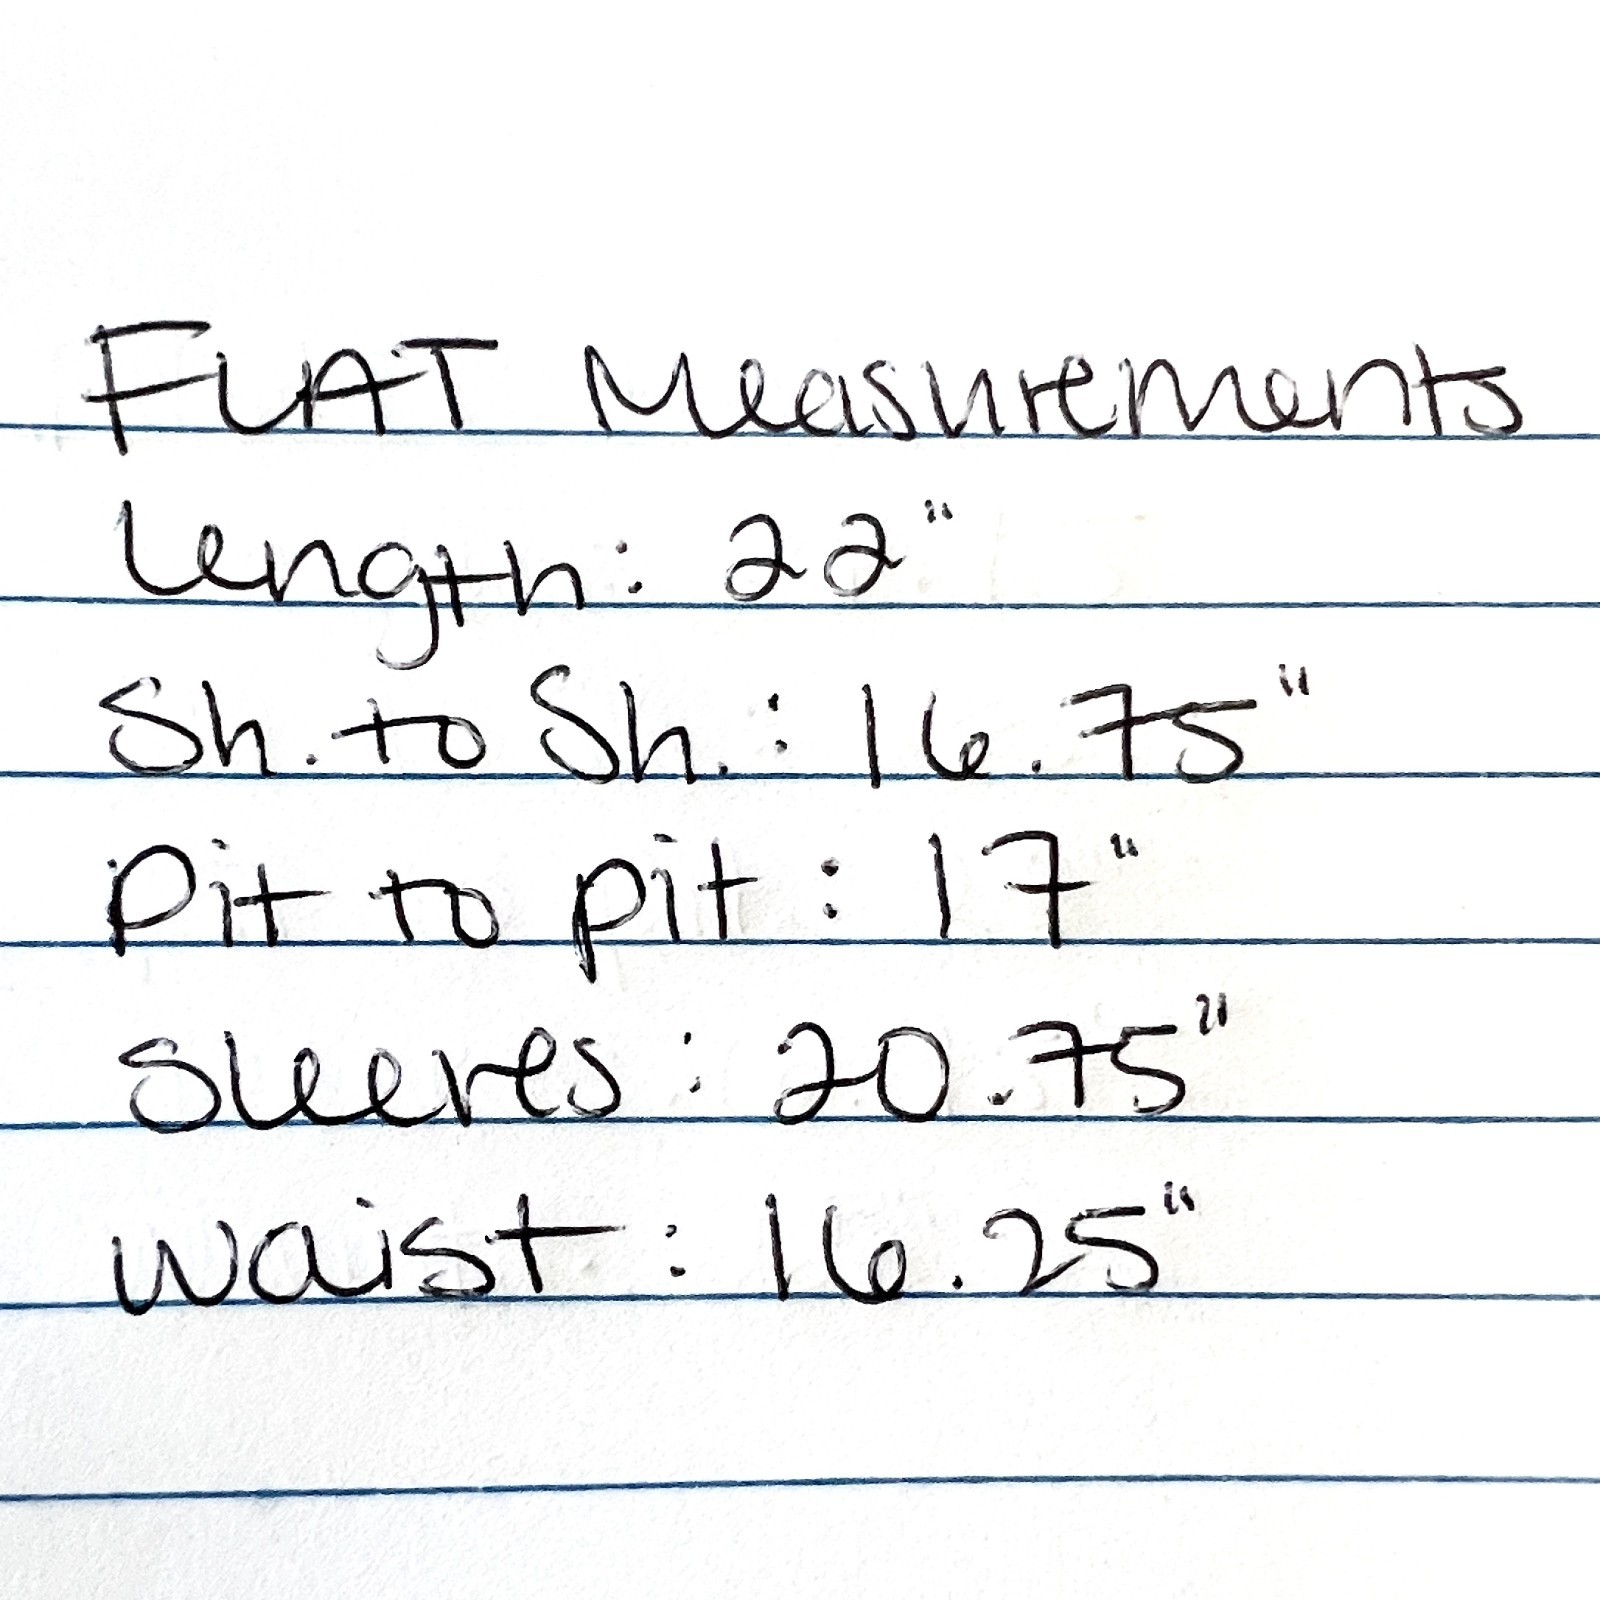 FLAT Measurements
Length: 22"
Sh. to Sh.: 16.75"
Pit to pit: 17"
Sleeves: 20.75"
Waist: 16.25"